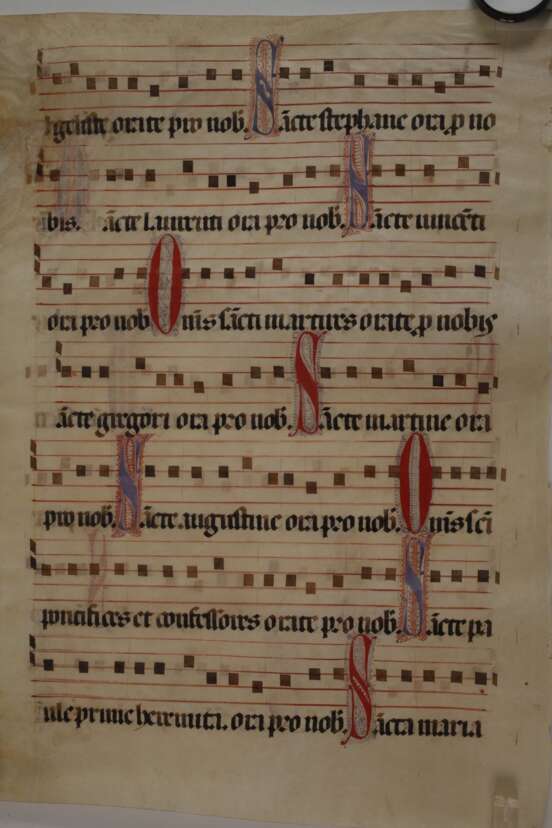 geliste orate pro nob. Sācte stephane ora ꝓ no
bis. ācte laurenti ora pro nob. Sācte uincēti
ora pro nob. Omīs sācti martires orate ꝓ nobis
ācte gregori ora pro nob. Sācte martine ora
pro nob. Sācte augustine ora pro nob. Omīs scī
pontifices et confessores orate pro nob. Sācte pa
ule prime heremita. ora pro nob. Sācta maria